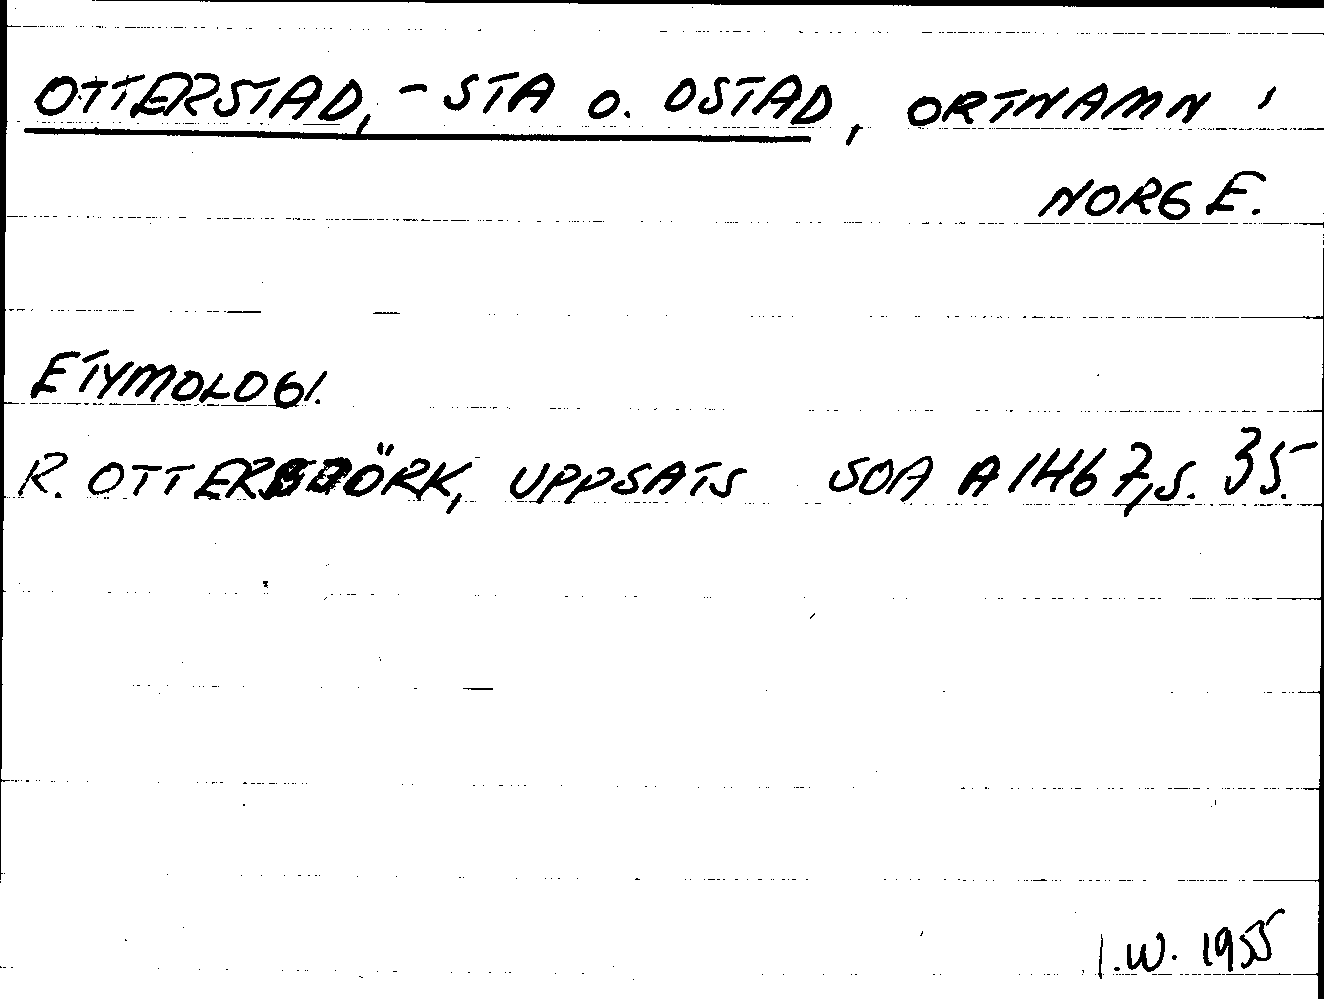 OTTERSTAD, -STA O. OSTAD, ORTNAMN I
NORGE.
ETYMOLOGI.
R. OTTERBJÖRK, UPPSATS SOA A1467, S. 35.
I.W. 1955